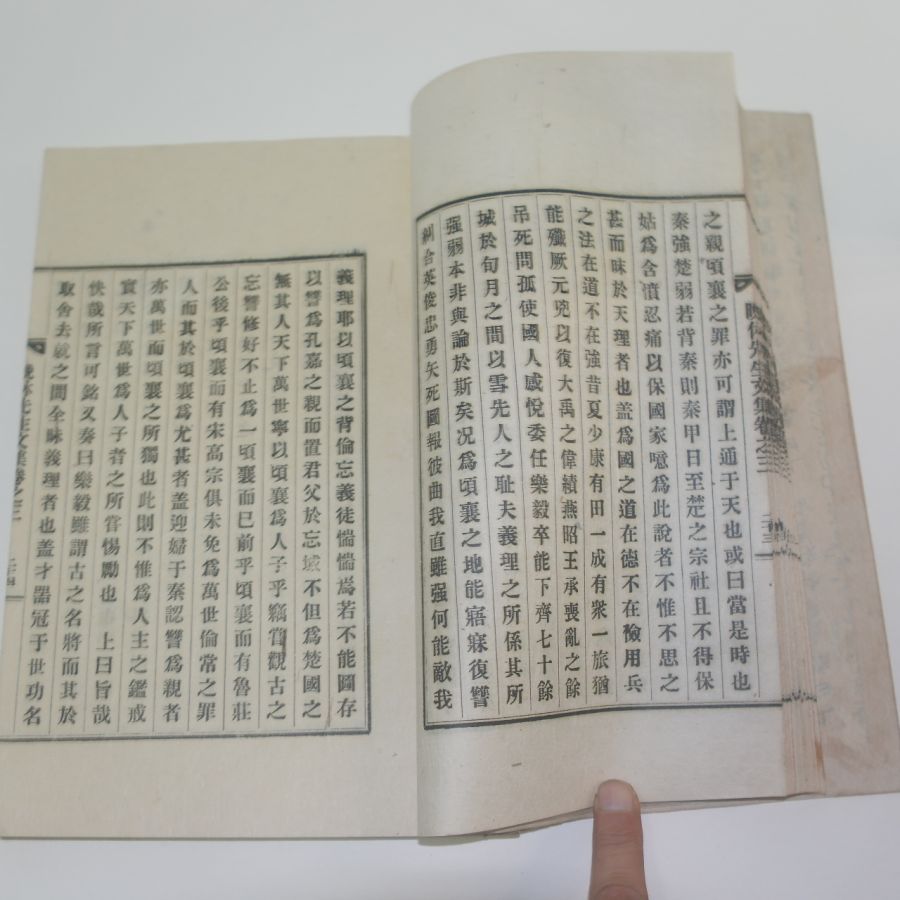 之親頃襄之罪亦可謂上通于天也或曰當是時也
秦強楚弱若背秦則秦甲日至楚之宗社且不得保
姑爲含憤忍痛以保國家噫爲此說者不惟不思之
甚而昧於天理者也盖爲國之道在德不在險用兵
之法在道不在強昔夏少康有田一成有衆一旅猶
能殲厥元兇以復大禹之偉績燕昭王承喪亂之餘
吊死問孤使國人感悅委任樂毅卒能下齊七十餘
城於旬月之間以雪先人之耻夫義理之所係其所
强弱本非與論於斯矣况爲頃襄之地能寤寐復讐
糾合英俊忠勇矢死圖報彼曲我直雖强何能敵我
先生文集卷之三
二十三
義理耶以頃襄之背倫忘義徒惴惴焉若不能圖存
以讐爲孔嘉之親而置君父於忘域不但爲楚國之
無其人天下萬世寧以頃襄爲人子乎竊嘗觀古之
忘讐修好不止爲一頃襄而已前乎頃襄而有魯莊
公後乎頃襄而有宋高宗俱未免爲萬世倫常之罪
人而其於頃襄爲尤甚者盖迎婦于秦認讐爲親者
亦萬世而頃襄之所獨也此則不惟爲人主之鑑戒
實天下萬世爲人子者之所當惕勵也 上曰旨哉
快哉所言可銘又奏曰樂毅雖謂古之名將而其於
取舍去就之間全昧義理者也盖才器冠于世功名
先生文集卷之三